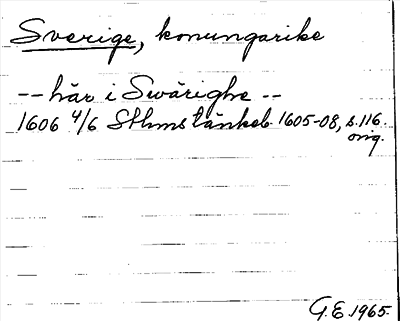 Sverige, konungarike
-- här i Swärighe --
1606 4/6 Sthms tänkeb. 1605-08, s. 116.
orig.
G.E. 1965.